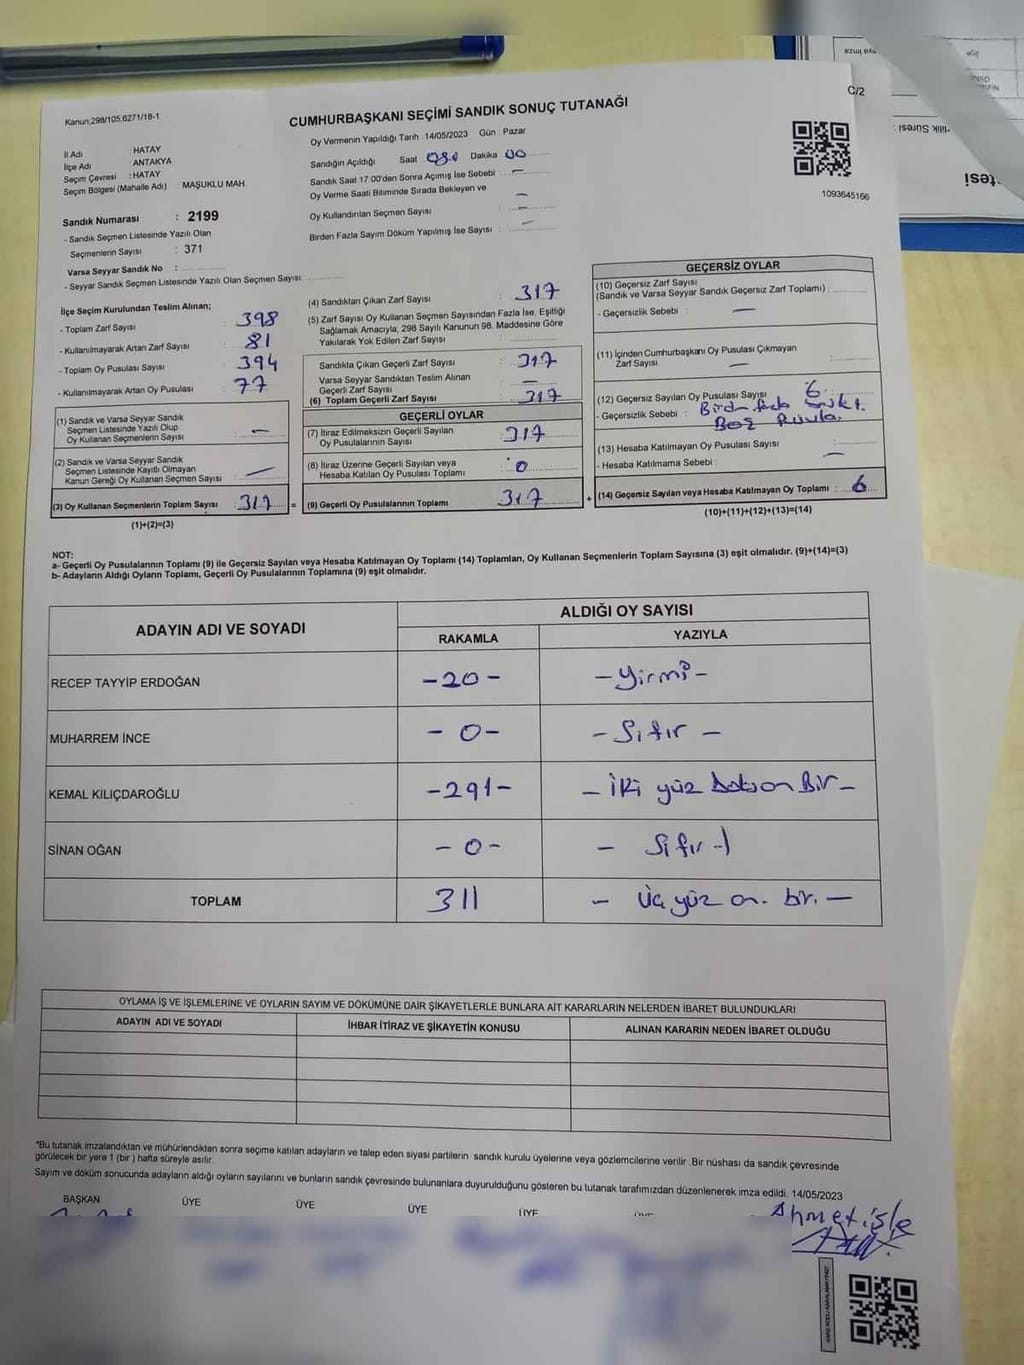 C/2
Kanun;298/105,6271/18-1
CUMHURBAŞKANI SEÇİMİ SANDIK SONUÇ TUTANAĞI
Oy Vermenin Yapıldığı Tarih : 14/05/2023 Gün : Pazar
İl Adı : HATAY
İlçe Adı : ANTAKYA
Seçim Çevresi : HATAY
Seçim Bölgesi (Mahalle Adı) MAŞUKLU MAH
Sandığın Açıldığı Saat Dakika 00
Sandık Saat 17:00'den Sonra Açımış İse Sebebi : –
Oy Verme Saati Bitiminde Sırada Bekleyen ve
Oy Kullandırılan Seçmen Sayısı : –
Birden Fazla Sayım Döküm Yapılmış İse Sayısı : –
1093645166
Sandık Numarası : 2199
- Sandık Seçmen Listesinde Yazılı Olan
Seçmenlerin Sayısı : 371
Varsa Seyyar Sandık No :
- Seyyar Sandık Seçmen Listesinde Yazılı Olan Seçmen Sayısı:
İlçe Seçim Kurulundan Teslim Alınan;
- Toplam Zarf Sayısı : 398
- Kullanılmayarak Artan Zarf Sayısı : 81
- Toplam Oy Pusulası Sayısı : 394
- Kullanılmayarak Artan Oy Pusulası : 77
(1) Sandık ve Varsa Seyyar Sandık
Seçmen Listesinde Yazılı Olup
Oy Kullanan Seçmenlerin Sayısı : –
(2) Sandık ve Varsa Seyyar Sandık
Seçmen Listesinde Kayıtlı Olmayan
Kanun Gereği Oy Kullanan Seçmen Sayısı : –
(3) Oy Kullanan Seçmenlerin Toplam Sayısı : 317 =
(1)+(2)=(3)
(4) Sandıktan Çıkan Zarf Sayısı : 317
(5) Zarf Sayısı Oy Kullanan Seçmen Sayısından Fazla İse, Eşitliği
Sağlamak Amacıyla, 298 Sayılı Kanunun 98. Maddesine Göre
Yakılarak Yok Edilen Zarf Sayısı :
Sandıkta Çıkan Geçerli Zarf Sayısı : 317
Varsa Seyyar Sandıktan Teslim Alınan
Geçerli Zarf Sayısı : –
(6) Toplam Geçerli Zarf Sayısı : 317
GEÇERLİ OYLAR
(7) İtiraz Edilmeksizin Geçerli Sayılan
Oy Pusulalarının Sayısı : 317
(8) İtiraz Üzerine Geçerli Sayılan veya
Hesaba Katılan Oy Pusulası Toplamı : 0
(9) Geçerli Oy Pusulalarının Toplamı : 317 +
GEÇERSİZ OYLAR
(10) Geçersiz Zarf Sayısı
(Sandık ve Varsa Seyyar Sandık Geçersiz Zarf Toplamı) :
- Geçersizlik Sebebi : –
(11) İçinden Cumhurbaşkanı Oy Pusulası Çıkmayan
Zarf Sayısı : –
(12) Geçersiz Sayılan Oy Pusulası Sayısı : 6
- Geçersizlik Sebebi : Birden fazla
Boş Pusula
(13) Hesaba Katılmayan Oy Pusulası Sayısı :
- Hesaba Katılmama Sebebi : –
(14) Geçersiz Sayılan veya Hesaba Katılmayan Oy Toplamı : 6
(10)+(11)+(12)+(13)=(14)
NOT:
a- Geçerli Oy Pusulalarının Toplamı (9) ile Geçersiz Sayılan veya Hesaba Katılmayan Oy Toplamı (14) Toplamları, Oy Kullanan Seçmenlerin Toplam Sayısına (3) eşit olmalıdır. (9)+(14)=(3)
b- Adayların Aldığı Oyların Toplamı, Geçerli Oy Pusulalarının Toplamına (9) eşit olmalıdır.
ADAYIN ADI VE SOYADI
ALDIĞI OY SAYISI
RAKAMLA YAZIYLA
RECEP TAYYİP ERDOĞAN -20- -Yirmi-
MUHARREM İNCE -0- -Sıfır-
KEMAL KILIÇDAROĞLU -291- -İki yüz doksan Bir-
SİNAN OĞAN -0- - Sıfır -
TOPLAM 311 - Üç yüz on bir. -
OYLAMA İŞ VE İŞLEMLERİNE VE OYLARIN SAYIM VE DÖKÜMÜNE DAİR ŞİKAYETLERLE BUNLARA AİT KARARLARIN NELERDEN İBARET BULUNDUKLARI
ADAYIN ADI VE SOYADI İHBAR İTİRAZ VE ŞİKAYETİN KONUSU ALINAN KARARIN NEDEN İBARET OLDUĞU
*Bu tutanak imzalandıktan ve mühürlendikten sonra seçime katılan adayların ve talep eden siyasi partilerin sandık kurulu üyelerine veya gözlemcilerine verilir .Bir nüshası da sandık çevresinde
görülecek bir yere 1 (bir ) hafta süreyle asılır.
Sayım ve döküm sonucunda adayların aldığı oyların sayılarını ve bunların sandık çevresinde bulunanlara duyurulduğunu gösteren bu tutanak tarafımızdan düzenlenerek imza edildi. 14/05/2023
BAŞKAN ÜYE ÜYE ÜYE ÜYE ÜYE
Ahmet işle